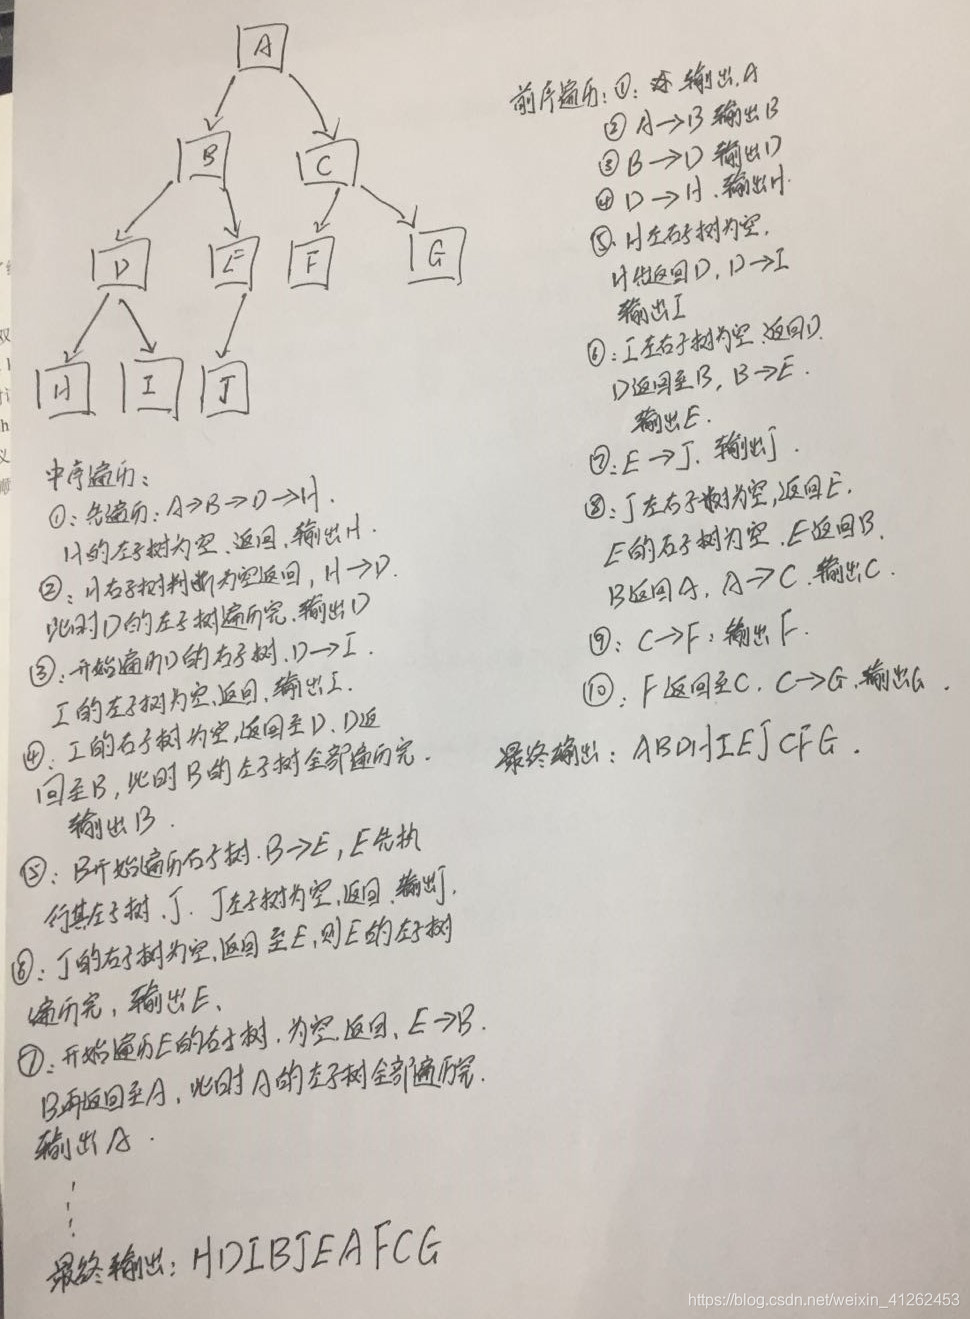 A
B
C
D
E
F
G
H
I
J
前序遍历：①：输出A
② A→B 输出B
③ B→D 输出D
④ D→H、输出H.
⑤：H左右子树为空，
H先返回D，D→I
输出I
⑥：I左右子树为空、返回D.
D返回至B，B→E.
输出E.
⑦：E→J、输出J.
⑧：J左右子树为空，返回E.
E的右子树为空、E返回B.
B返回A，A→C、输出C.
⑨：C→F：输出F.
⑩：F返回至C. C→G、输出G.
最终输出：ABDHIEJCFG.
中序遍历：
①：先遍历：A→B→D→H.
H的左子树为空、返回、输出H.
②：H右子树判断为空返回，H→D.
此时D的左子树遍历完、输出D
③：开始遍历D的右子树、D→I.
I的左子树为空、返回、输出I.
④：I的右子树为空，返回至D、D返
回至B，此时B的左子树全部遍历完.
输出B.
⑤：B开始遍历右子树. B→E，E先执
行其左子树、J. J左子树为空、返回、输出J.
⑥：J的右子树为空、返回至E，则E的左子树
遍历完，输出E、
⑦：开始遍历E的右子树、为空、返回、E→B.
B再返回至A，此时A的左子树全部遍历完.
输出A.
最终输出：HDIBJEAFCG
双
h
义
师
https://blog.csdn.net/weixin_41262453